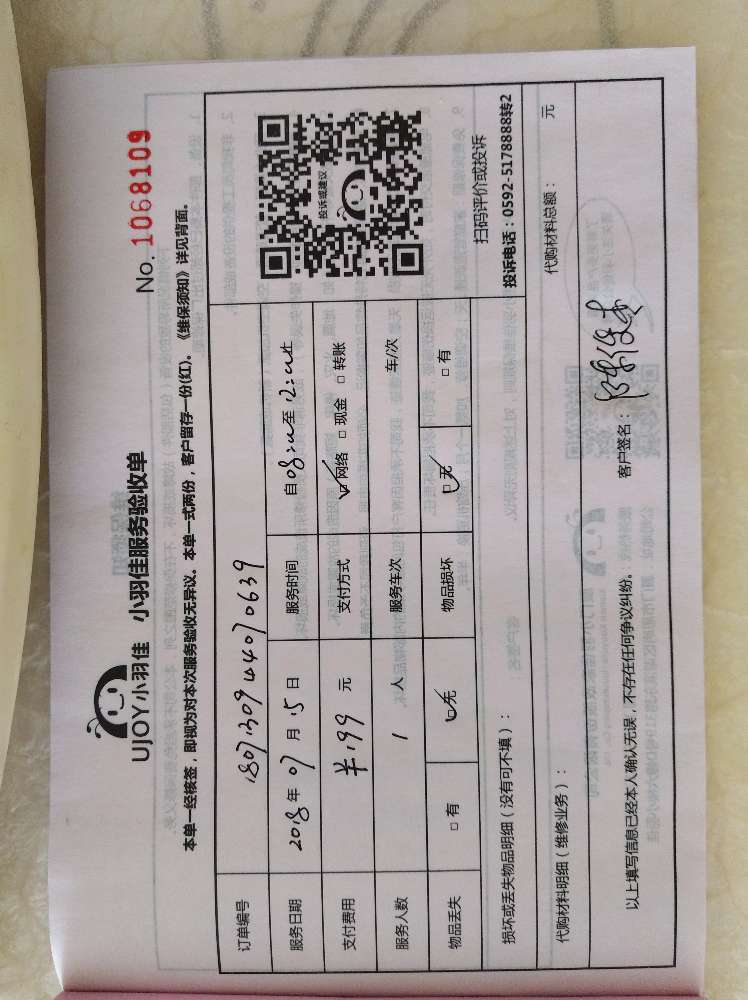 No. 1068109
UJOY小羽佳 小羽佳服务验收单
本单一经核签，即视为对本次服务验收无异议。本单一式两份，客户留存一份(红)。《维保须知》详见背面。
订单编号 1807130944070639
服务日期 2018年07月15日 服务时间 自08:00至12:00止
支付费用 ￥199元 支付方式 ☑网络 □现金 □转账
服务人数 1 人 服务车次 车/次
物品丢失 □有 ☑无 物品损坏 ☑无 □有
投诉或建议
扫码评价或投诉
投诉电话：0592-5178888转2
损坏或丢失物品明细（没有可不填）：
代购材料明细（维修业务）： 代购材料总额： 元
以上填写信息已经本人确认无误，不存在任何争议纠纷。 客户签名：